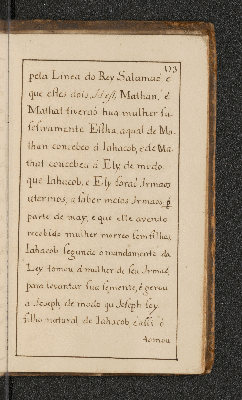 173
pela Linea do Rey Salamaõ, e
que elles dois, Id est, Mathan, e
Mathat tiveraõ hua mulher su-
cesivamente Estha, a qual de Ma-
than concebeo á Iahacob, e de Ma-
that concebeu á Ely, de modo
que Iahacob, e Ely foraõ Irmaos
uterinos, a saber meios Irmaos, p
parte de may, e que elle avendo
recebido mulher morreo sem filhos,
Iahacob segundo o mandamento da
Ley tomou á mulher de seu Irmaõ,
para levantar sua semente, e gerou
a Joseph de modo q̃ Joseph foy
filho natural de Iahacob, e assi é
tomou